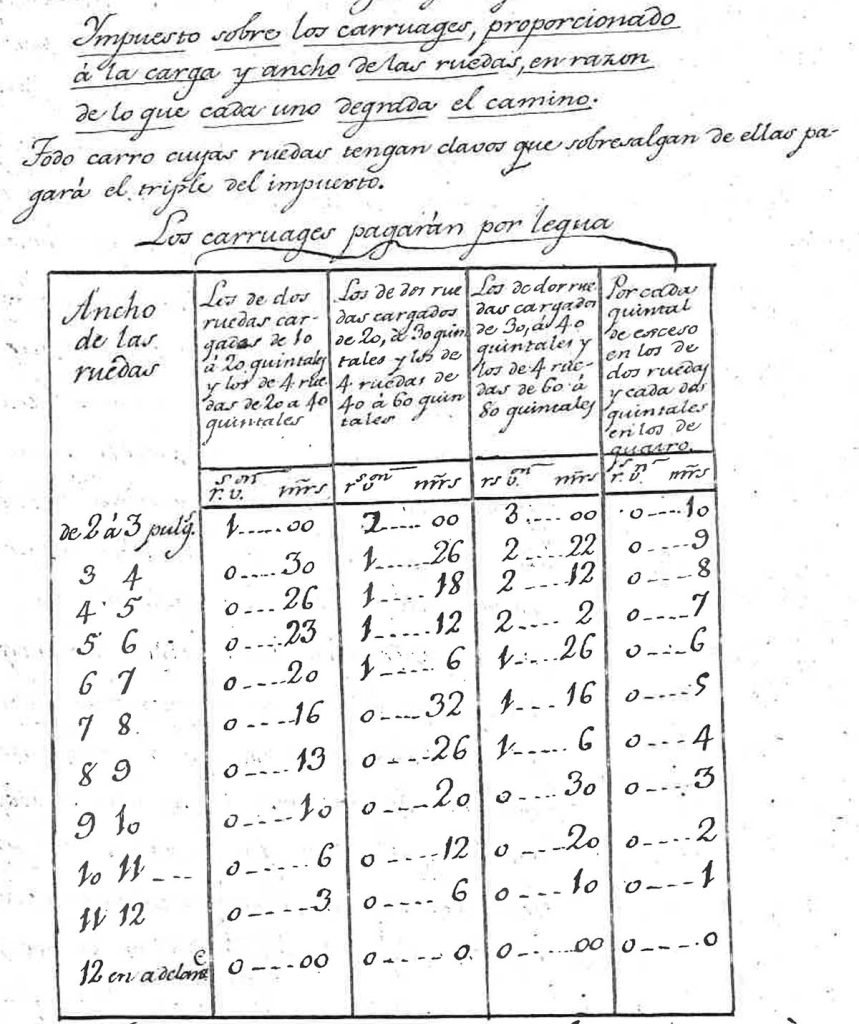 Ympuesto sobre los carruages, proporcionado
á la carga y ancho de las ruedas, en razon
de lo que cada uno degrada el camino.
Todo carro cuyas ruedas tengan clavos que sobresalgan de ellas pa-
gará el triple del impuesto.
Los carruages pagarán por legua
Ancho
de las
ruedas
Los de dos
ruedas car-
gadas de 10
á 20 quintales
y los de 4 rue
das de 20 a 40
quintales
Los de dos rue
das cargados
de 20, á 30 quin
tales y los de
4 ruedas de
40 á 60 quin
tales
Los de dos rue
das cargados
de 30, á 40
quintales y
los de 4 rue-
das de 60 á
80 quintales
Por cada
quintal
de esceso
en los de
dos ruedas
y cada dos
quintales
en los de
quatro.
rs von mrs rs von mrs rs von mrs rs vn mrs
de 2 á 3 pulgs. 1.....00 2.....00 3.....00 0....10
3 4 0....30 1.....26 2....22 0....9
4 5 0....26 1.....18 2....12 0....8
5 6 0....23 1.....12 2.... 2 0....7
6 7 0....20 1..... 6 1....26 0....6
7 8 0....16 0....32 1....16 0....5
8 9 0....13 0....26 1..... 6 0....4
9 10 0....10 0....20 0....30 0....3
10 11 0..... 6 0....12 0....20 0....2
11 12 0..... 3 0.... 6 0....10 0....1
12 en adelante 0....00 0.....0. 0....00 0.....0